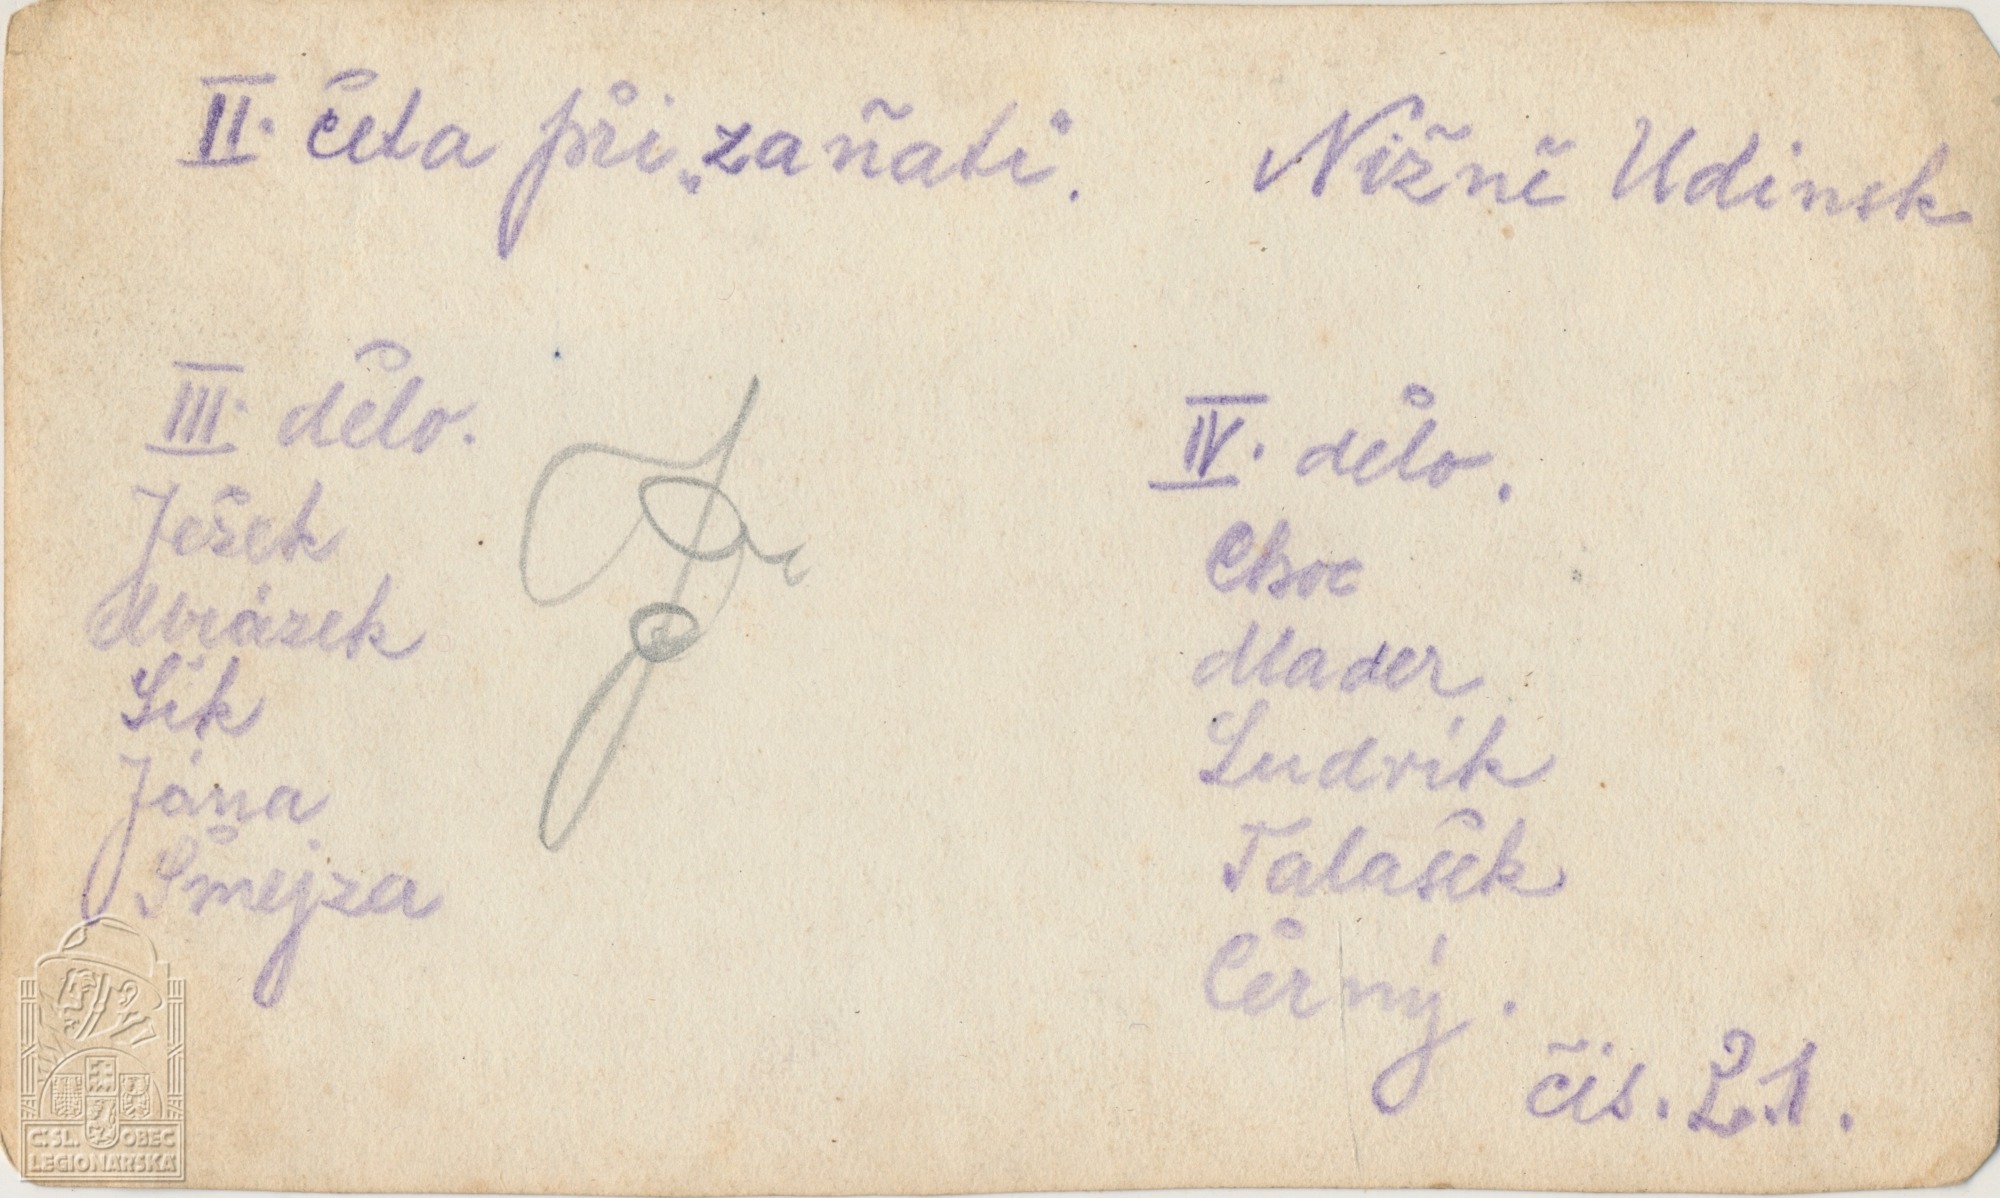 II. četa při „zaňatí“. Nižně Udinsk
III. dělo.
Ješek
Mrázek
Sik
Jána
Šmejza
IV. dělo.
Choc
Mader
Ludvík
Talašek
Černý.
čis. 21.
Č.SL. OBEC
LEGIONÁŘSKÁ